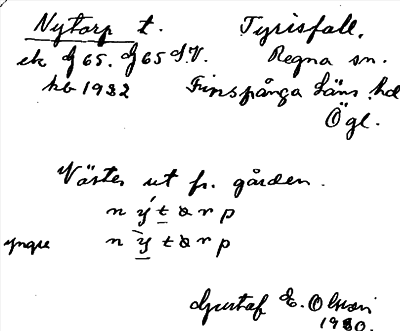 Nytorp t.
Tyrisfall,
ek f 65. f 65 S.V.
Regna sn.
hb 1932
Finspånga läns hd
Ögl.
Väster ut fr. gården.
n ý t ɑ r p
yngre n ỳ t ɑ r p
Gustaf E. Olsson
1930.